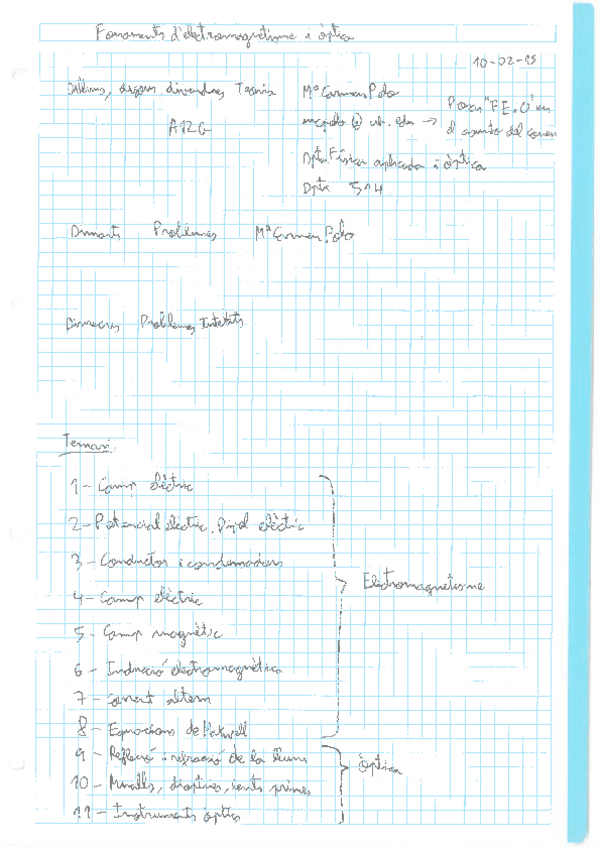 Fonaments d'electromagnetisme i òptica
10-02-15
Dilluns, dijous divendres Teoria
Mª Carmen Polo
Posar "FE.O" en
@ → el asunto del correo
Dpto. Física aplicada i òptica
Dptx 514
Dimarts Problemes Mª Carmen Polo
Dimecres Problemes
Temari
1 - Camp elèctric
2 - Potencial elèctric. Dipol elèctric
3 - Conductors i condensadors
4 - Camp elèctric
5 - Camp magnètic
6 - Inducció electromagnètica
7 - Corrent altern
8 - Equacions de Maxwell
Electromagnetisme
9 - Reflexió i refracció de la llum
10 - Miralls, dioptries, lents primes
11 - Instruments òptics
Òptica